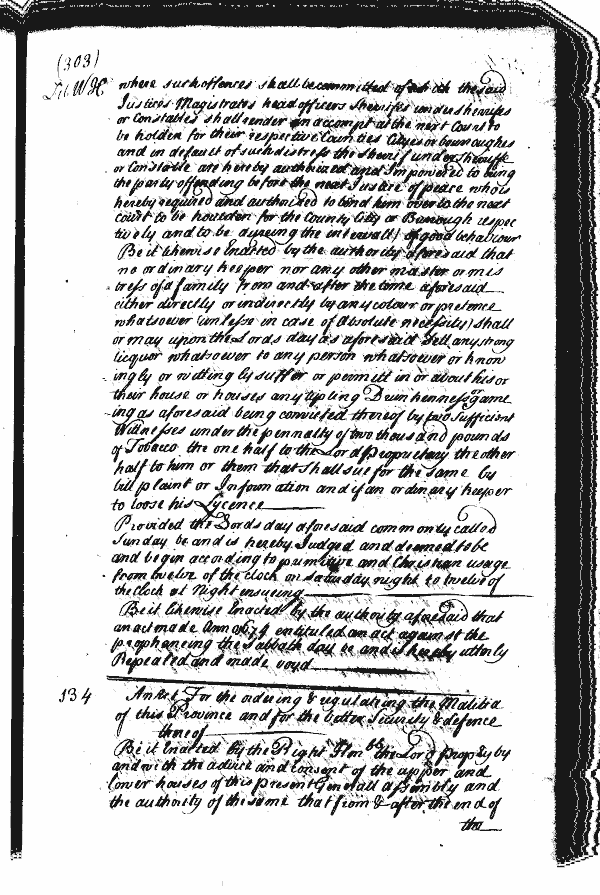 (303)
Lib W H
where such offences shall be committed of which the said
Justices Magistrates head officers Sherriffes undersherriffes
or Constables shall render an accompt at the next Court to
be holden for their respective Counties Cityes or bourroughes
and in default of such distress the Sherif undersherriff
or Constable are hereby authorized and Impowered to bring
the party offending before the next Justice of peace who is
hereby required and authorized to bind him over to the next
court to be houlden for the County City or Burrough respec
tively and to be dureing the intervall of good behaviour
Be it likewise Enacted by the authority aforesaid that
no ordinary keeper nor any other master or mis
tress of a family from and after the time aforesaid
either directly or indirectly by any colour or pretence
whatsoever (unlesse in case of absolute necessity) shall
or may upon the Lords day as aforesaid Sell any strong
licquor whatsoever to any person whatsoever or know
ingly or wittingly suffer or permitt in or about his or
their house or houses any tipling Drunkenness or game
ing as aforesaid being convicted thereof by two Sufficient
Wittnesses under the pennalty of two thousand pounds
of Tobacco the one half to the Lord Proprietary the other
half to him or them that Shall sue for the same by
bill plaint or Information and if an ordinary keeper
to loose his Lycence
Provided the Lords day aforesaid commonly called
Sunday be and is hereby Judged and deemed to be
and begin according to primitive and Christian usage
from twelve of the clock on saturday night to twelve of
the clock at Night ensueing
Be it likewise Enacted by the authority aforesaid that
an act made Anno 1674 entituled an act against the
prophaneing the Sabbath day be and is hereby utterly
Repealed and made voyd
134
An Act For the ordering & regulateing the Malitia
of this Province and for the better Security & defence
thereof
Be it Enacted by the Right Honble the Lord Propry by
and with the advice and consent of the upper and
lower houses of this present Generall assembly and
the authority of the same that from & after the end of
the